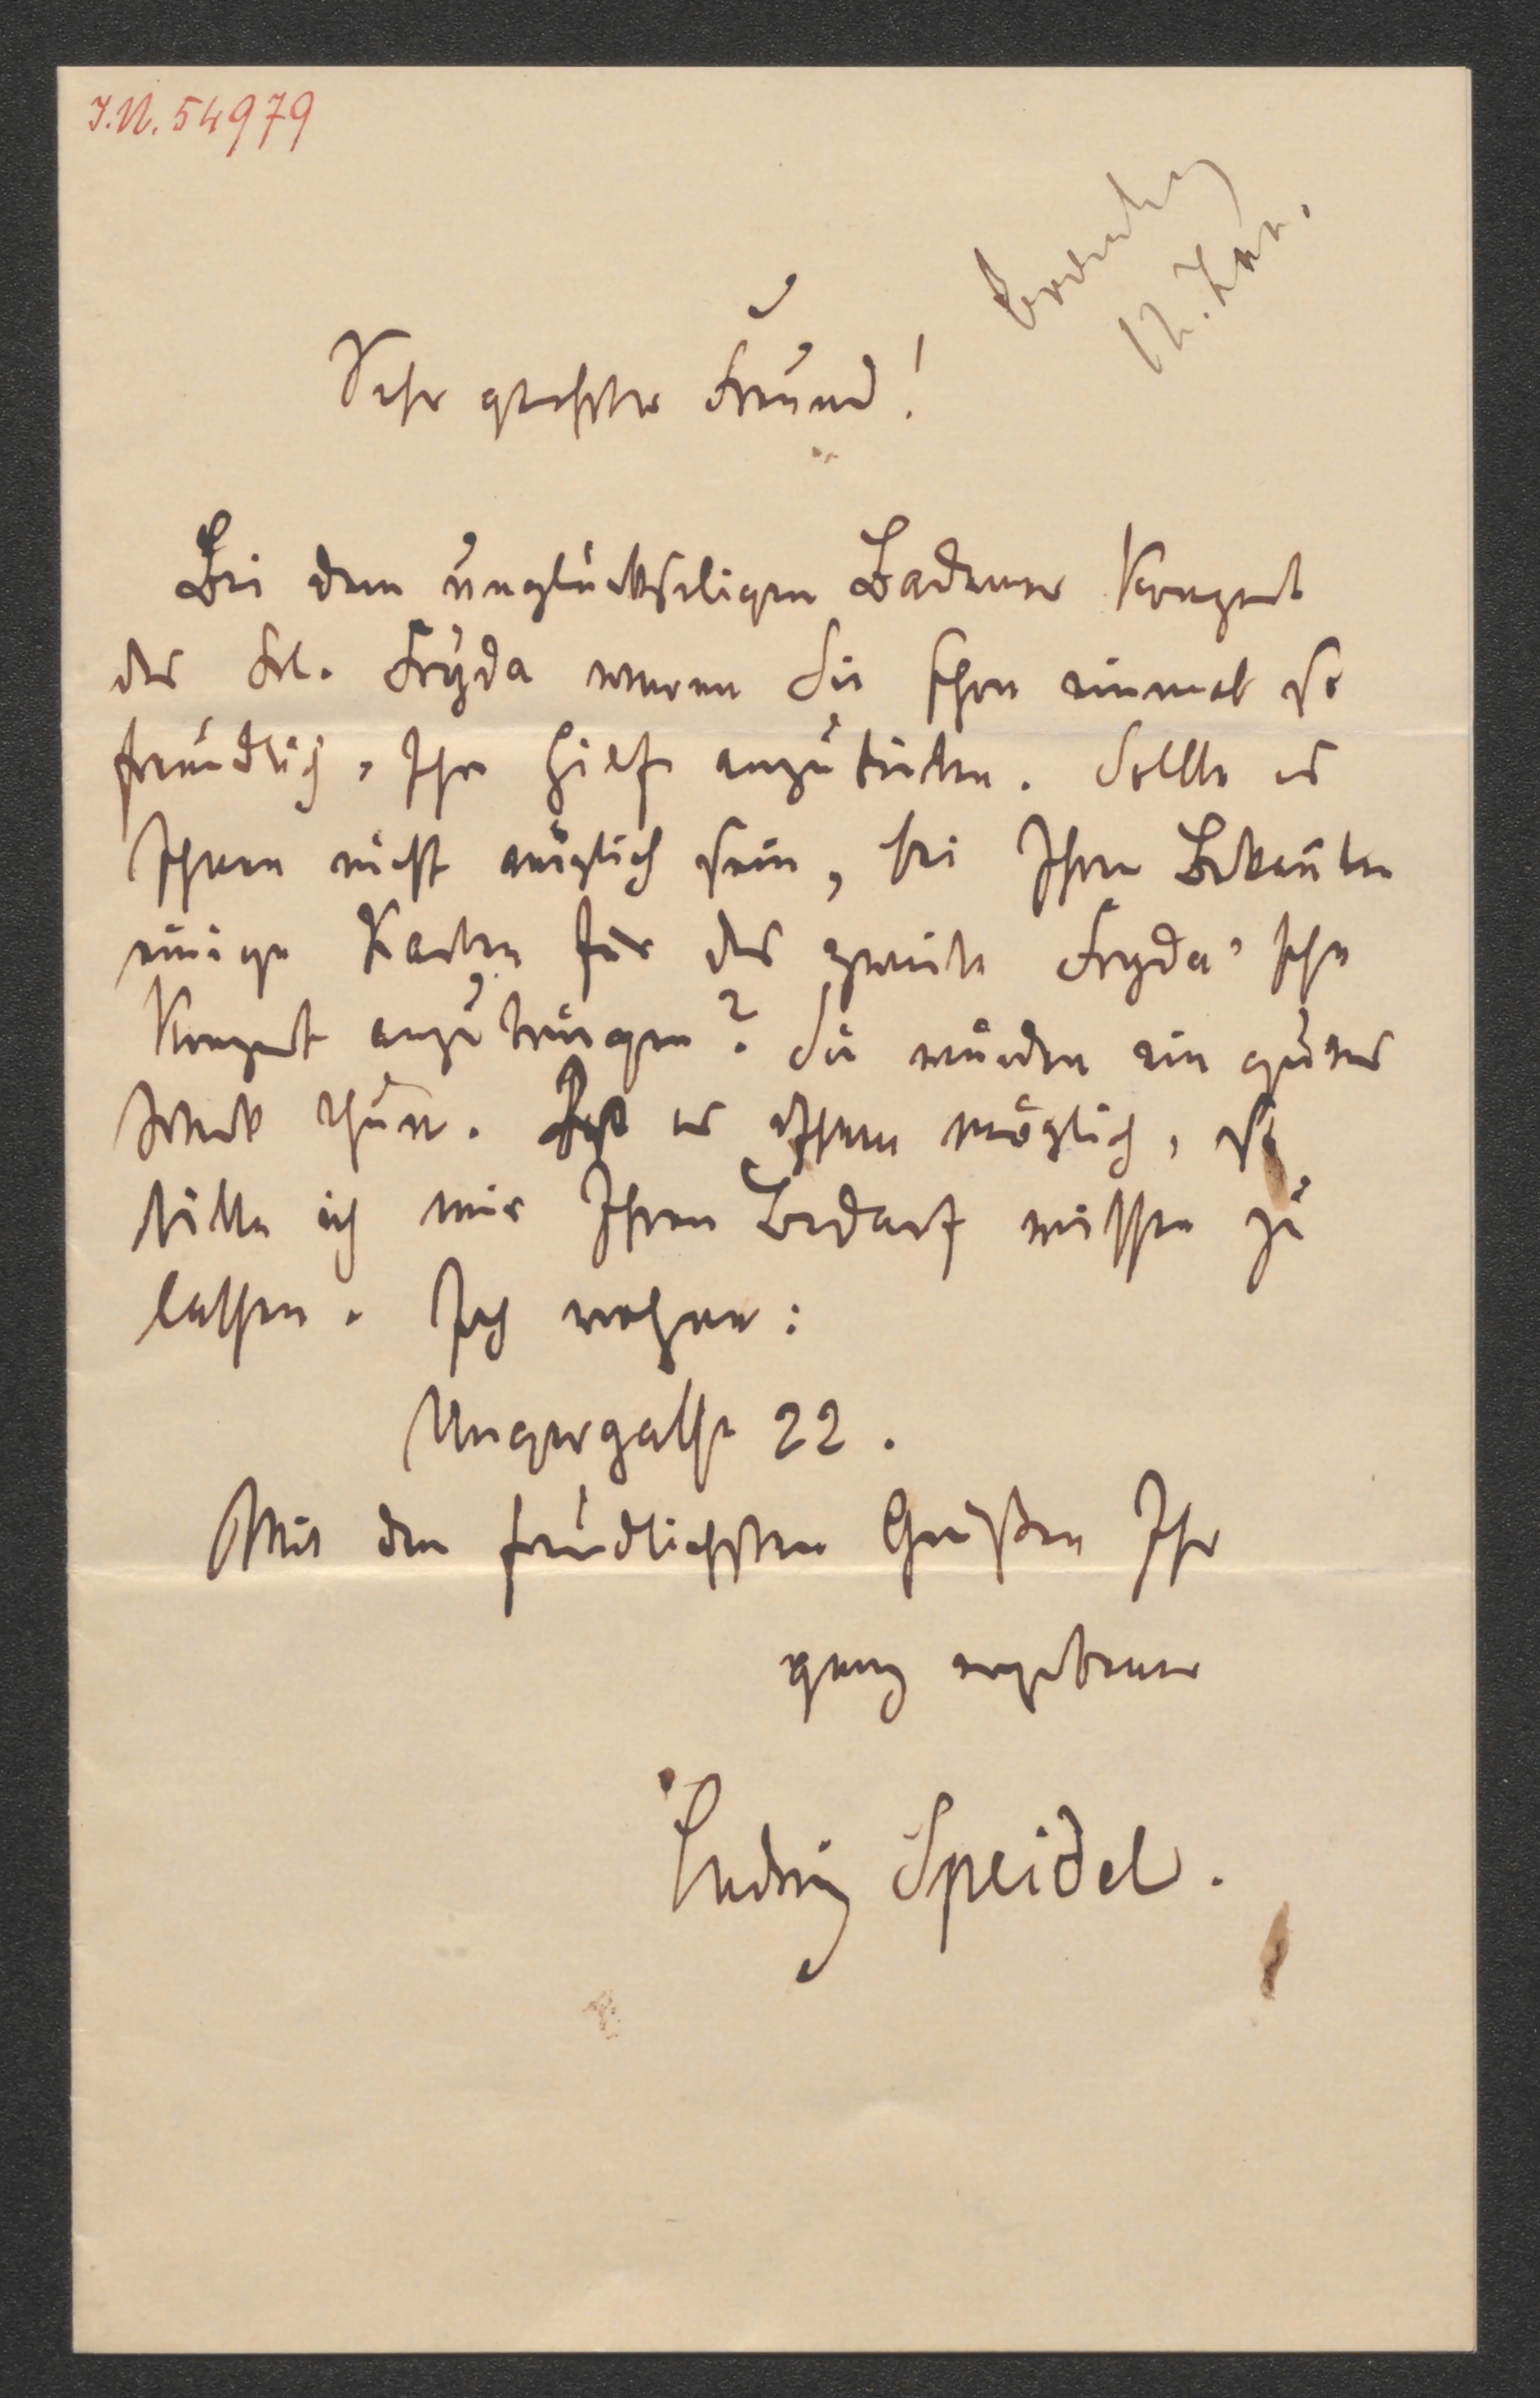 I.N. 54979
12. Jän.
Sehr geehrter Freund!
Bei dem unglückseligen Badener Konzert
des Frl. Fryda waren Sie schon einmal so
freundlich, Ihre Hilfe anzubieten. Sollte es
Ihnen nicht möglich sein, bei Ihren Bekannten
einige Karten für das zweite Fryda'sche
Konzert anzubringen? Sie würden ein gutes
Werk thun. Ist es Ihnen möglich, so
bitte ich mir Ihren Bedarf wissen zu
lassen. Ich wohne:
Ungargasse 22.
Mit den freundlichsten Grüßen Ihr
ganz ergebener
Ludwig Speidel.